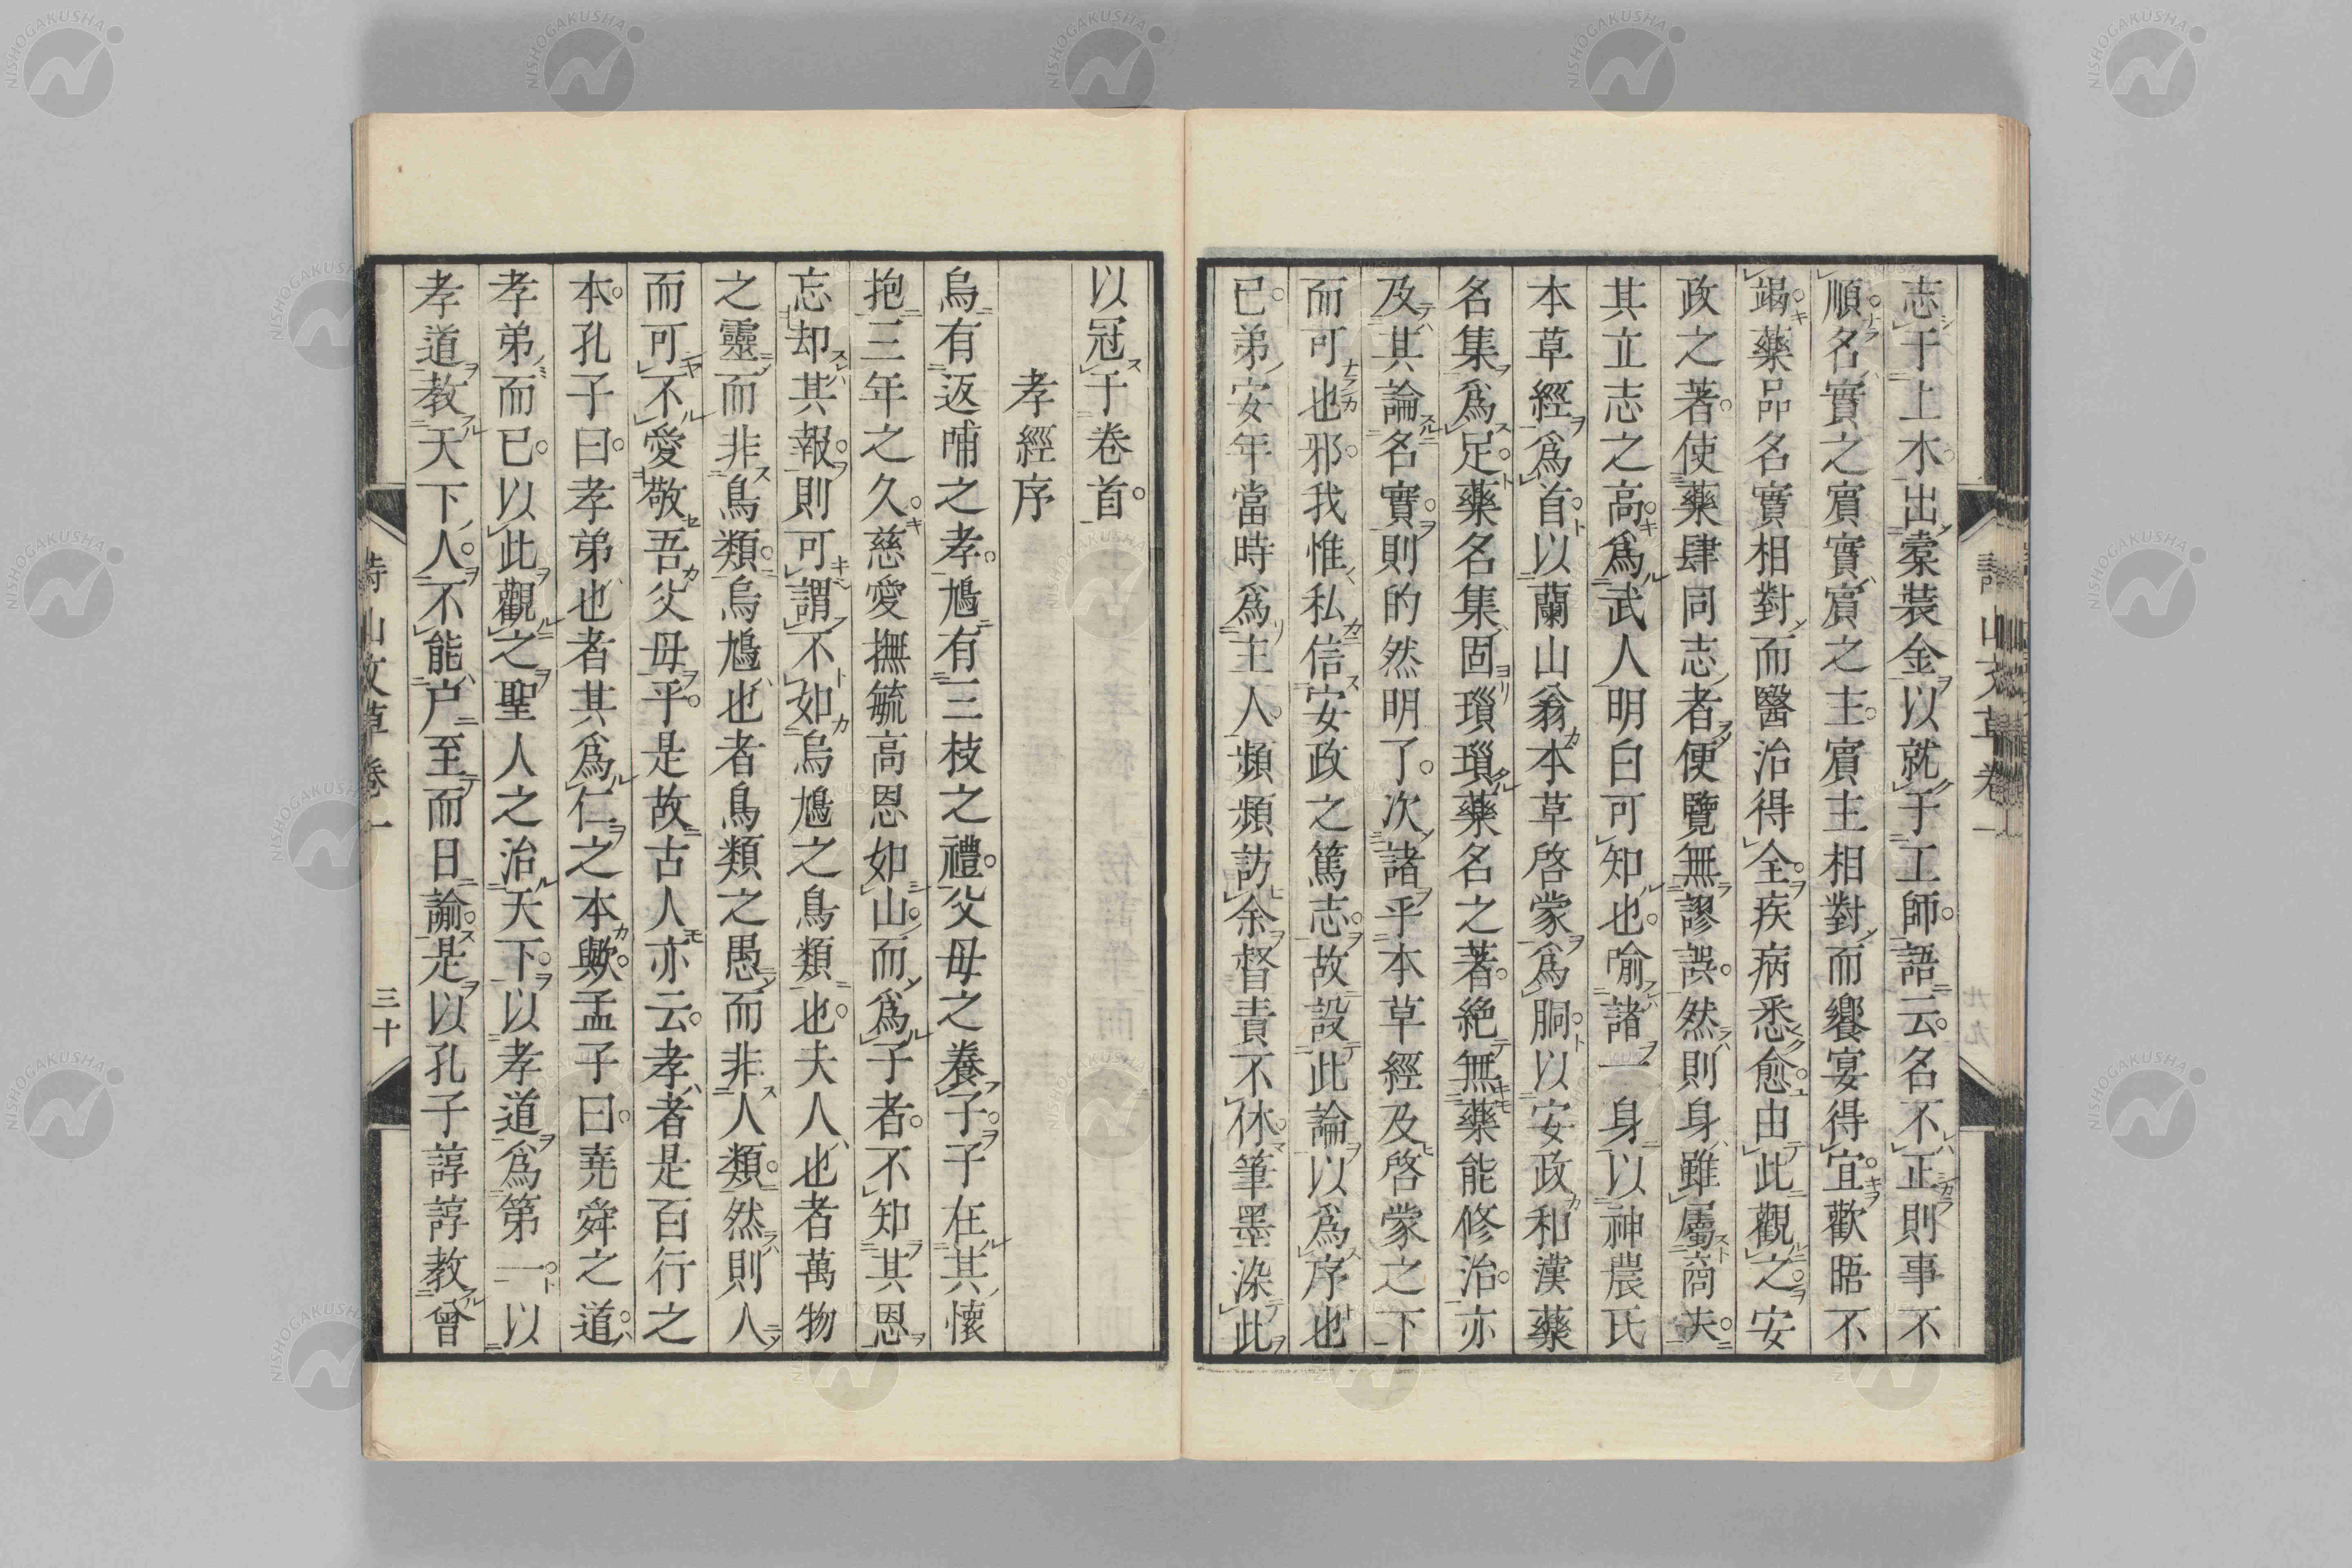 志于土木出橐装金以就于工師語云名不正則事不
順名實之賔實賔之主賔主相對而饗宴得宜歡晤不
竭藥品名實相對而醫治得全疾病悉愈由此觀之安
政之著使藥肆同志者便覽無謬誤然則身雖屬商夫
其立志之高爲武人明白可知也喻諸一身以神農氏
本草經爲首以蘭山翁本草啓蒙爲胴以安政和漢藥
名集爲足藥名集固瑣瑣藥名之著絶無藥能修治亦
及其論名實則的然明了次諸乎本草經及啓蒙之下
而可也邪我惟私信安政之篤志故設此論以爲序也
已弟安年當時爲主人頻頻訪余督責不休筆墨染此
以冠于卷首
孝經序
烏有返哺之孝鳩有三枝之禮父母之養子子在其懷
抱三年之久慈愛撫毓高恩如山而爲子者不知其恩
忘却其報則可謂不如烏鳩之鳥類也夫人也者萬物
之靈而非鳥類烏鳩也者鳥類之愚而非人類然則人
而可不愛敬吾父母乎是故古人亦云孝者是百行之
本孔子曰孝弟也者其爲仁之本歟孟子曰堯舜之道
孝弟而已以此觀之聖人之治天下以孝道爲第一以
孝道教天下人不能户至而日諭是以孔子諄諄教曾
詩山文草卷一
三十